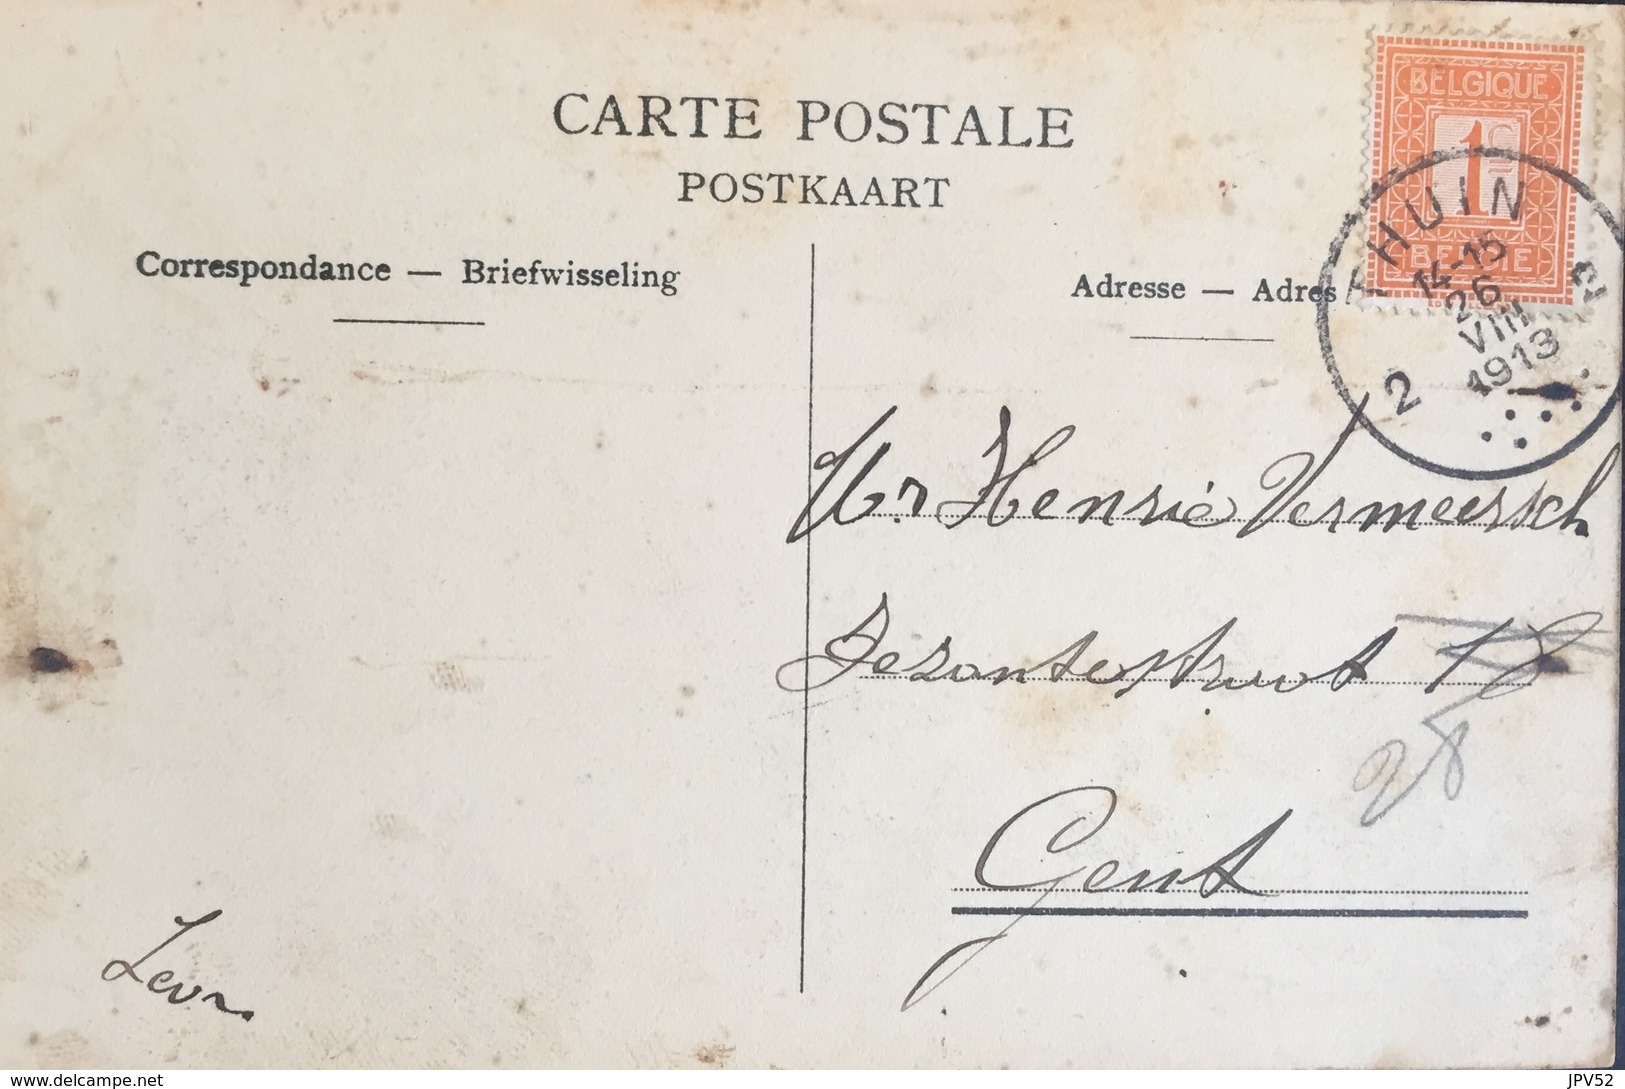 CARTE POSTALE
POSTKAART
Correspondance — Briefwisseling
Adresse — Adres
BELGIQUE
1c
BELGIE
THUIN
14-15
26
VIII
1913
2
Mr Henrie Vermeersch
18
28
Gent
www.delcampe.net
JPV52